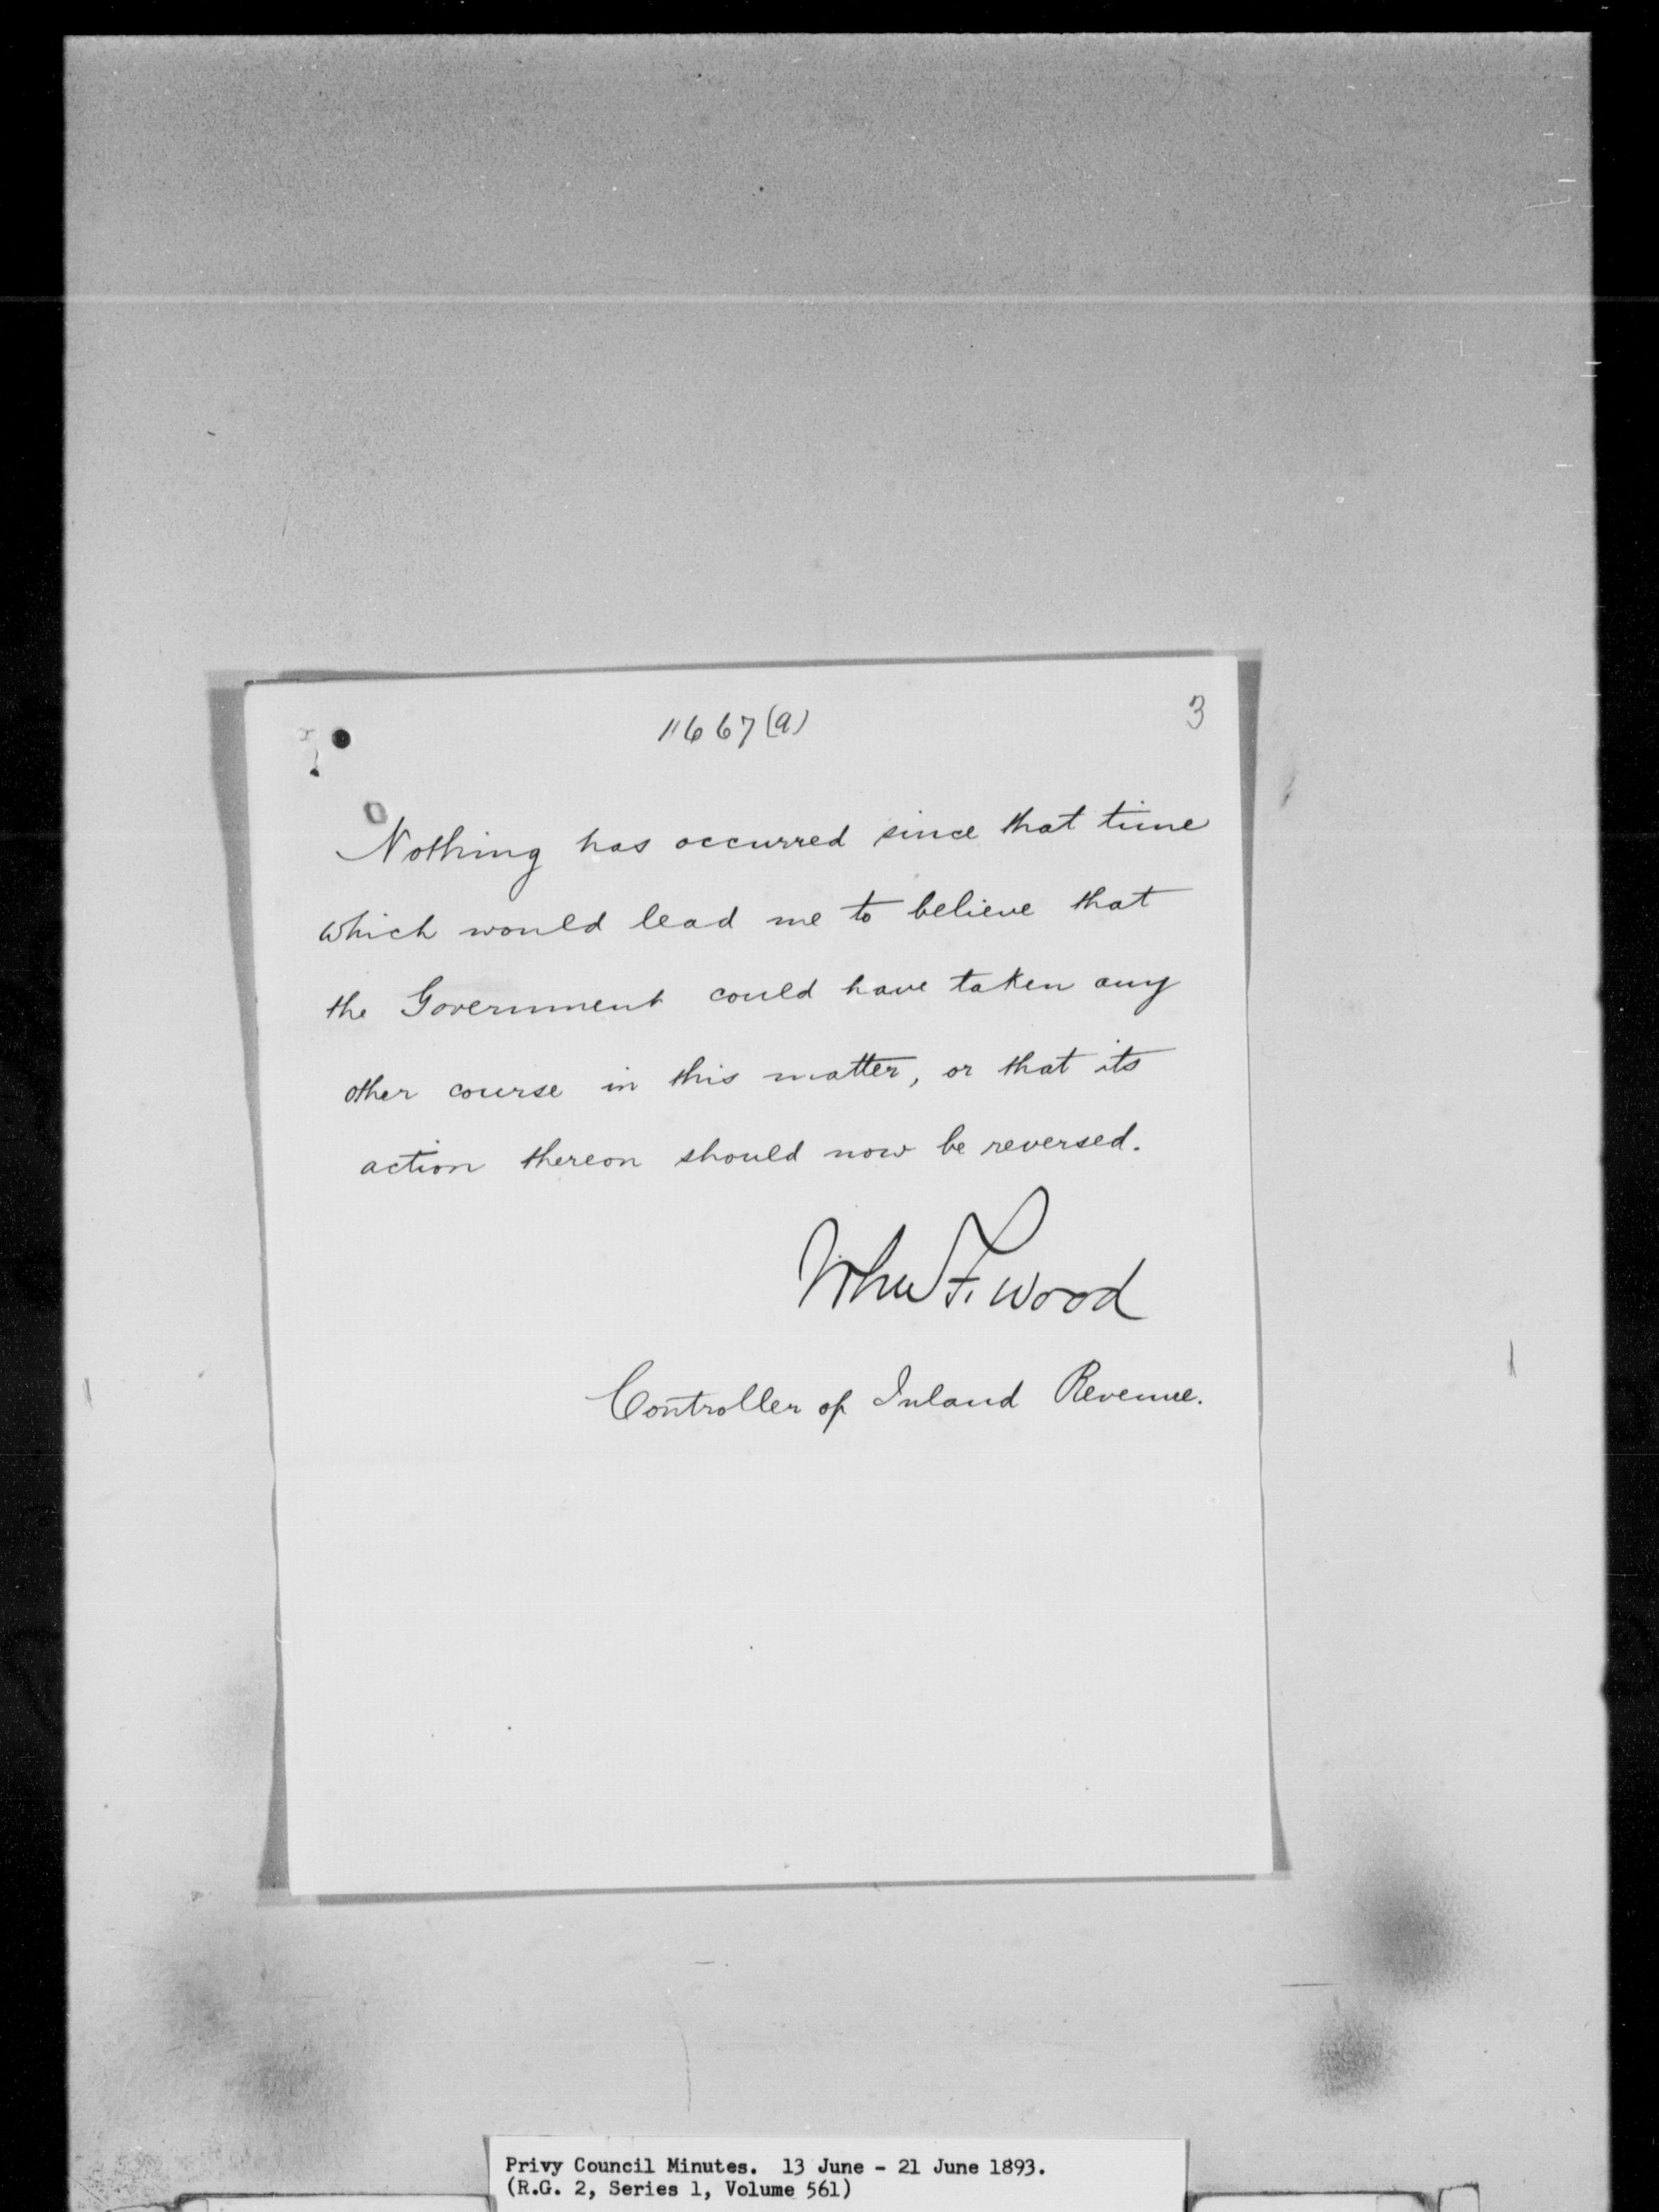 1667(a)
3
Nothing has occurred since that time
which would lead me to believe that
the Government could have taken any
other course in this matter, or that its
action thereon should now be reversed.
John F. Wood
Controller of Inland Revenue.
Privy Council Minutes. 13 June - 21 June 1893.
(R.G. 2, Series 1, Volume 561)